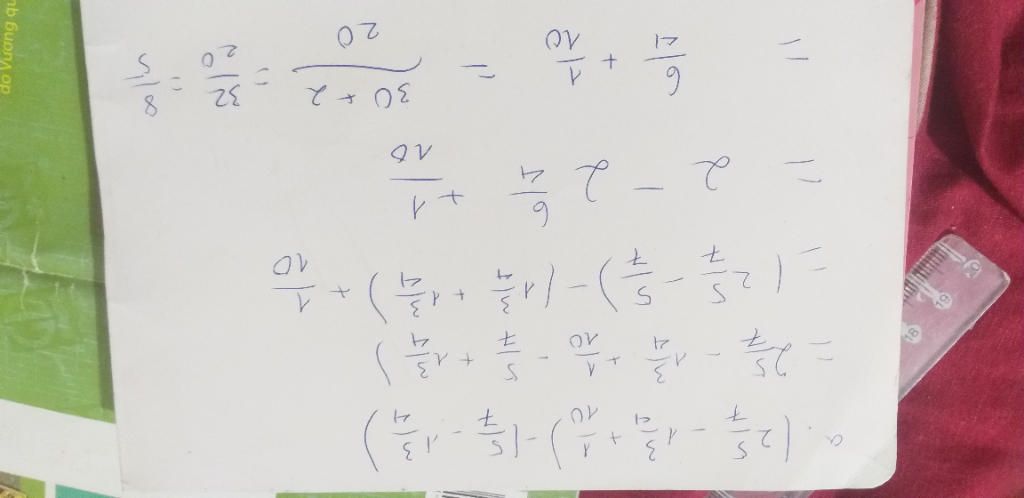 a. (2 5/7 - 1 3/4 + 1/10) - (5/7 - 1 3/4)
= 2 5/7 - 1 3/4 + 1/10 - 5/7 + 1 3/4)
= (2 5/7 - 5/7) - (1 3/4 + 1 3/4) + 1/10
= 2 - 2 6/4 + 1/10
= 6/4 + 1/10 = (30 + 2)/20 = 32/20 = 8/5
do Vương qu
18 19 20